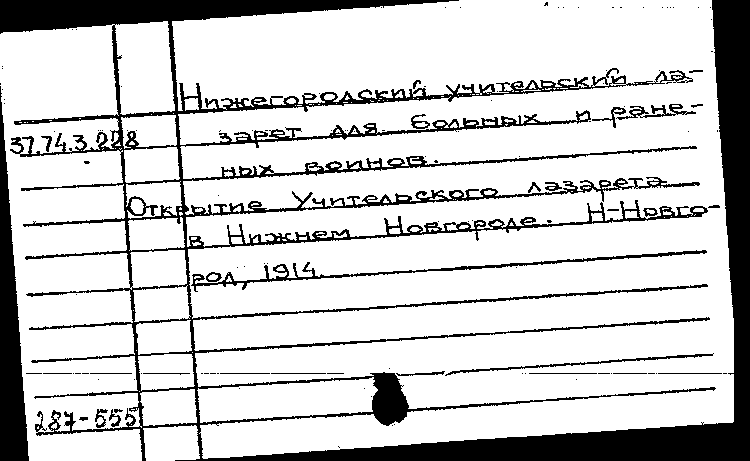 Нижегородский учительский ла-
37.74.3.228 зарет для больных и ране-
ных воинов.
Открытие Учительского лазарета
в Нижнем Новгороде. Н-Новго-
род, 1914.
287-555